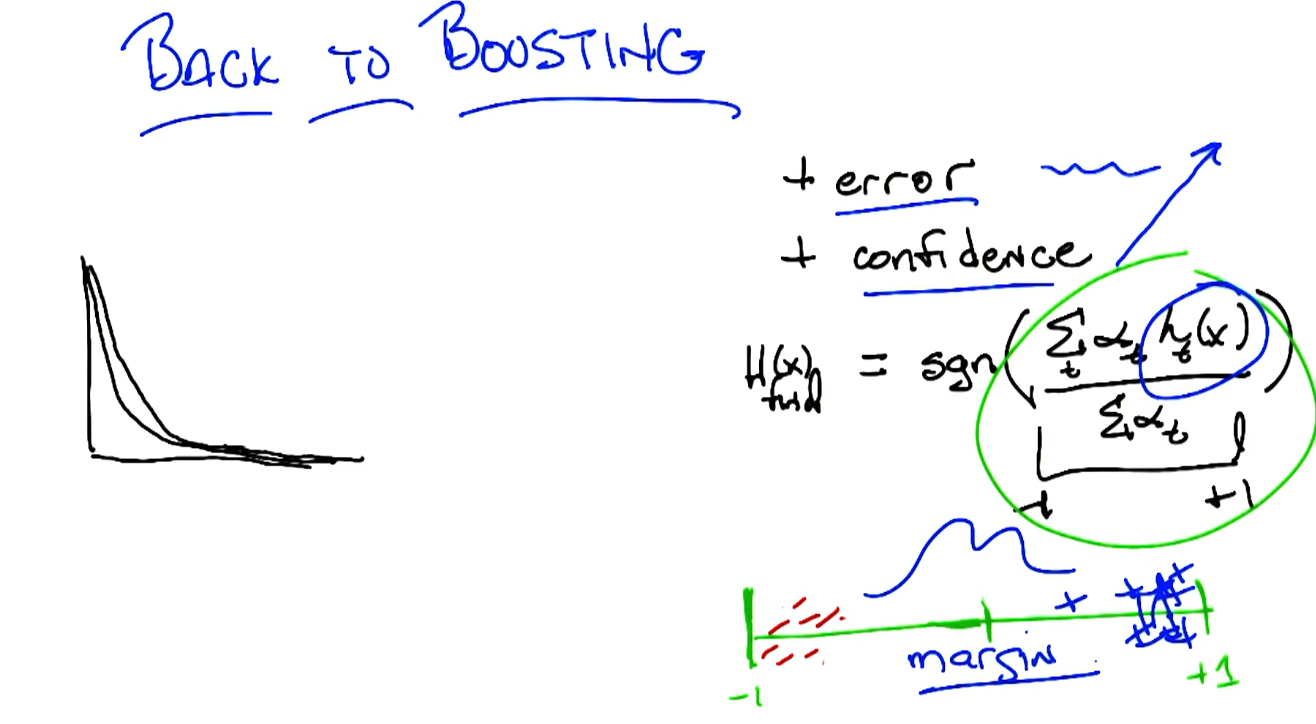 BACK TO BOOSTING
+ error
+ confidence
H(x) final = sgn( ∑_t α_t h_t(x) / ∑ α_t )
-1 +1
margin
-1 +1